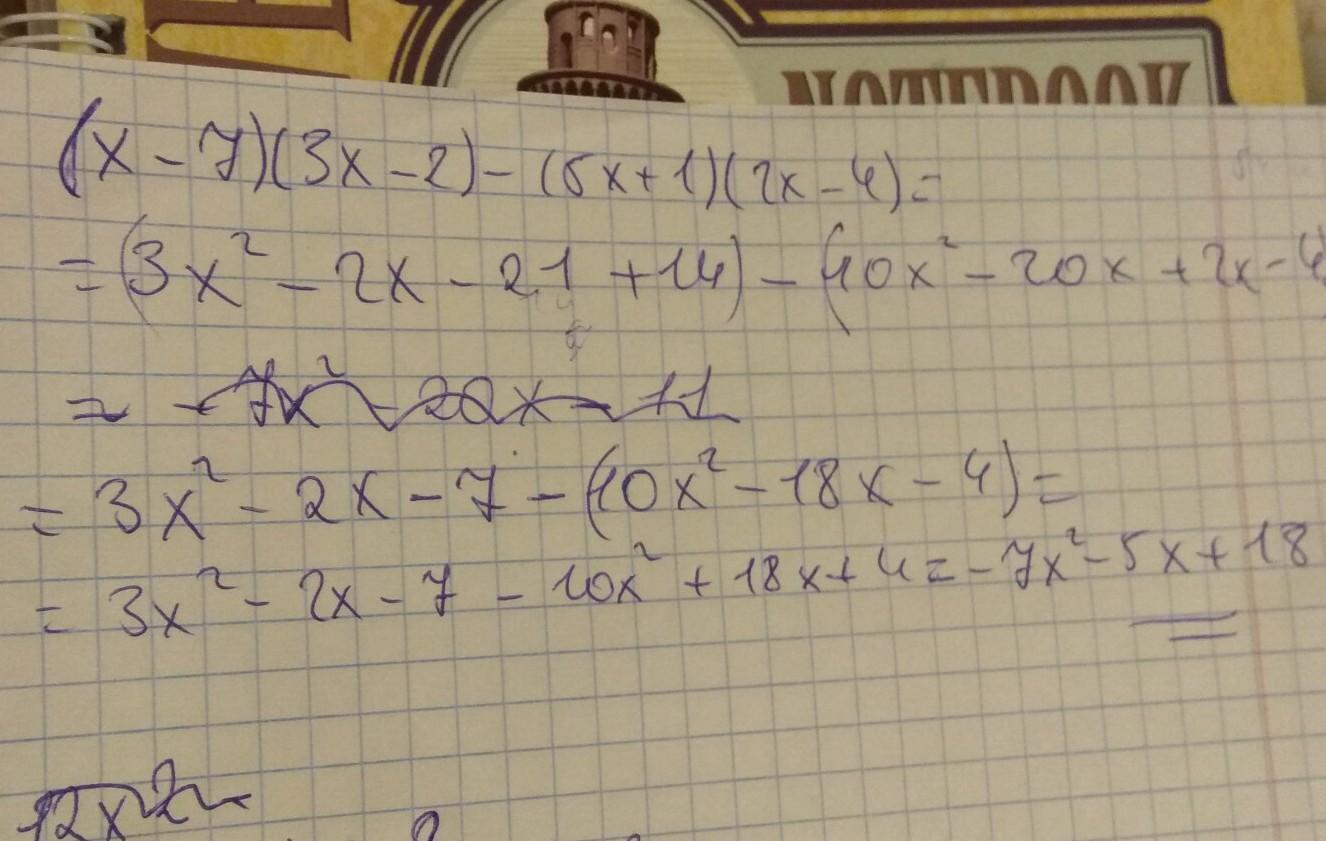 NOTEBOOK
(x - 7)(3x - 2) - (5x + 1)(2x - 4) =
= (3x² - 2x - 21 + 14) - (10x² - 20x + 2x - 4
= - 7x² - 22x - 11
= 3x² - 2x - 7 - (10x² - 18x - 4) =
= 3x² - 2x - 7 - 10x² + 18x + 4 = - 7x² - 5x + 18
12x2